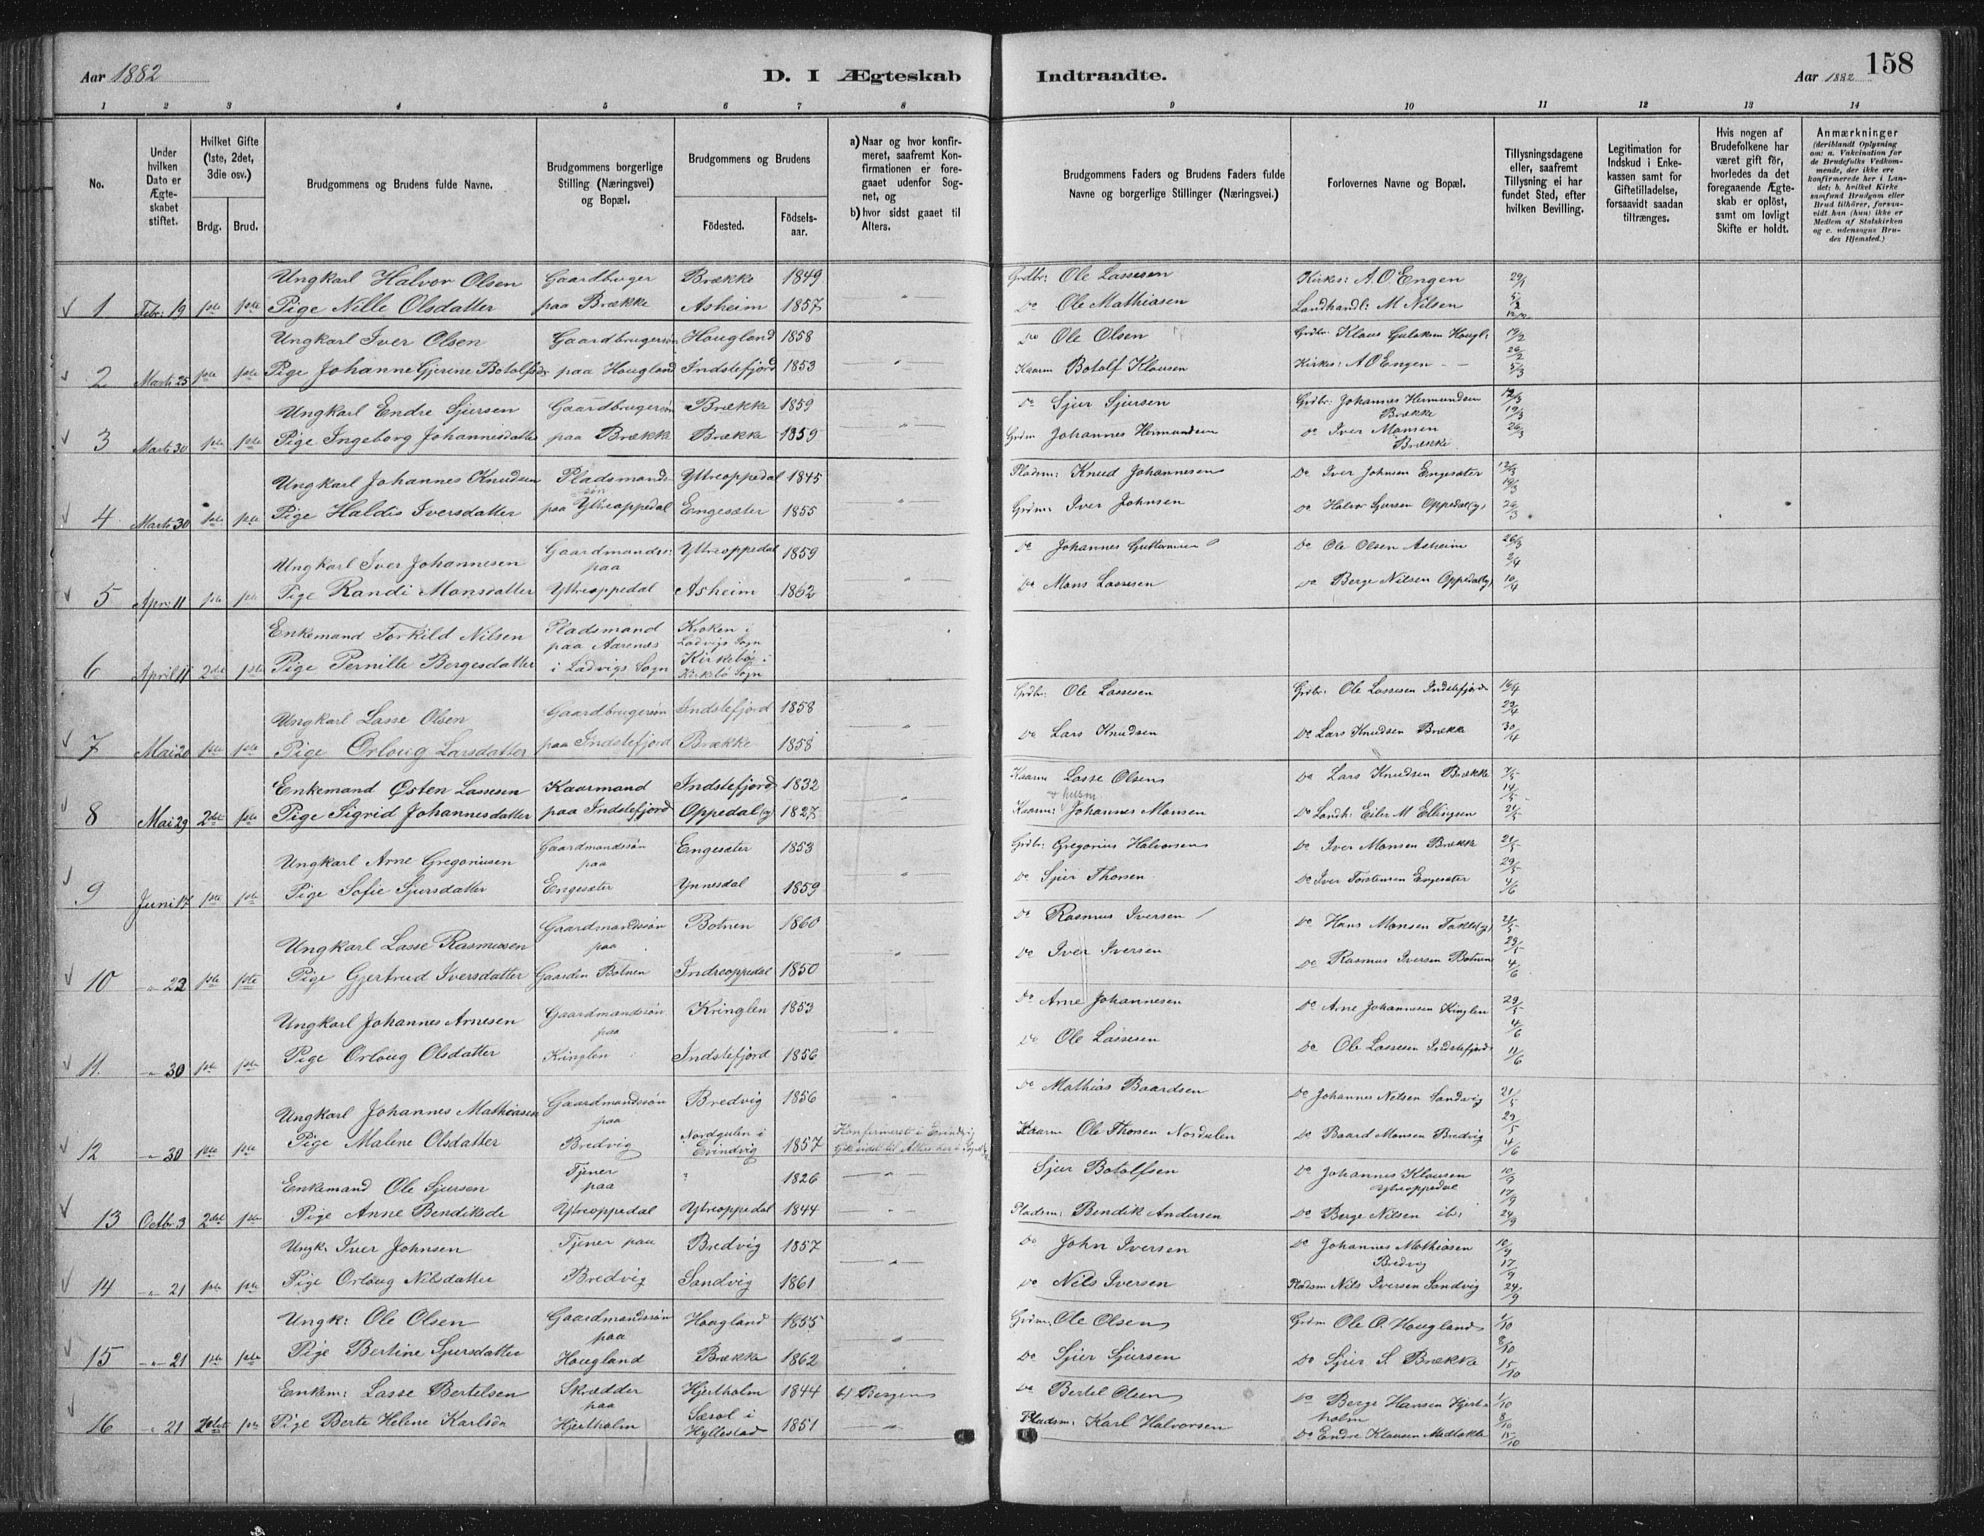 Aar 1882 D. I Ægteskab Indtraadte. Aar 1882 158
1 2 3 4 5 6 7 8 9 10 11 12 13 14
No.
Under hvilken Dato er Ægteskabet stiftet.
Hvilket Gifte (1ste, 2det, 3die osv.)
Brdg. Brud.
Brudgommens og Brudens fulde Navne.
Brudgommens borgerlige Stilling (Næringsvei) og Bopæl.
Brudgommens og Brudens
Födested. Födselsaar.
a) Naar og hvor konfirmeret, saafremt Konfirmationen er foregaaet udenfor Sognet, og
b) hvor sidst gaaet til Alters.
Brudgommens Faders og Brudens Faders fulde Navne og borgerlige Stillinger (Næringsvei.)
Forlovernes Navne og Bopæl.
Tillysningsdagene eller, saafremt Tillysning ei har fundet Sted, efter hvilken Bevilling.
Legitimation for Indskud i Enkekassen samt for Giftetilladelse, forsaavidt saadan tiltrænges.
Hvis nogen af Brudefolkene har været gift för, hvorledes da det foregaaende Ægteskab er oplöst, samt om lovligt Skifte er holdt.
Anmærkninger (deriblandt Oplysning om: a. Vakcination for de Brudefolks Vedkommende, der ikke ere konfirmerede her i Landet; b. hvilket Kirkesamfund Brudgom eller Brud tilhörer, forsaavidt han (hun) ikke er Medlem af Statskirken og c. udensogns Brudes Hjemsted.)
Ungkarl Halvor Olsen Gaardbruger Brække 1849 Grdbr: Ole Lassesen Kirkes: A.O Engen 29/1
1 Febr: 19 1ste 1ste Pige Nille Olsdatter paa Brække Asheim 1857 Do Ole Mathiasen Landhandl: M Nilsen 5/2 12/2
Ungkarl Iver Olsen Gaardbrugersøn Hougland 1858 Do Ole Olsen Grdbr: Klaus Hougl: 19/2
2 Marts 25 1ste 1ste Pige Johanne Gjerine Botolfsdr paa Hougland Indstefjord 1853 Kaarm Botolf Klausen Kirkes: A O Engen 26/2 5/3
Ungkarl Endre Sjursen Gaardbrugersøn Brække 1859 Do Sjur Sjursen Grdbr: Johannes Hermundsen Brække 12/3
3 Marts 30 1ste 1ste Pige Ingeborg Johannesdatter paa Brække Brække 1859 Grdm Johannes Hermundsen Do Iver Monsen Brække 19/3 26/3
Ungkarl Johannes Knudsen Pladsmandssøn Ytreoppedal 1845 Pladsm: Knud Johannesen Do Iver Johnsen Engesæter 12/3
4 Marts 30 1ste 1ste Pige Haldis Iversdatter paa Ytreoppedal Engesæter 1855 Grdm: Iver Johnsen Do Halvor Oppedal(y) 19/3 26/3
Ungkarl Iver Johannesen Gaardmandss: paa Ytreoppedal 1859 Do Johannes Guttormsen Do Ole Olsen Asheim 26/3
5 April 11 1ste 1ste Pige Randi Monsdatter Ytreoppedal Asheim 1862 Do Mons Lassesen Do Berge Nilsen Oppedal(y) 2/4 10/4
Enkemand Torkild Nilsen Pladsmand paa Aarenes Kroken i Ladvigs Sogn
6 April 11 2det 1ste Pige Pernille Bergesdatter i Ladvigs Sogn Kirkebø i Kirkebø Sogn
Ungkarl Lasse Olsen Gaardbrugersøn Indstefjord 1858 Grdbr: Ole Lassesen Grdbr: Ole Lassesen Indstefjord 16/4
7 Mai 20 1ste 1ste Pige Orloug Larsdatter paa Indstefjord Brække 1858 Do Lars Knudsen Do Lars Knudsen Brække 23/4 30/4
Enkemand Østen Lassesen Kaarmand Indstefjord 1832 Kaarm Lasse Olsen Do Lars Knudsen Brække 7/5
8 Mai 29 2det 1ste Pige Sigrid Johannesdatter paa Indstefjord Oppedal(y) 1827 Kaarm: Johannes Monsen Do Landh: Eiler M Ellingsen 14/5 21/5
Ungkarl Arne Gregoriusen Gaardmandssøn paa Engesæter 1853 Grdbr: Gregorius Halvorsen Do Iver Monsen Brække 21/5
9 Juni 17 1ste 1ste Pige Sofie Sjursdatter Engesæter Ynnesdal 1859 Do Sjur Thorsen Do Iver Torstensen Engesæter 29/5 4/6
Ungkarl Lasse Rasmussen Gaardmandssøn paa Botnen 1860 Do Rasmus Iversen Do Hans Monsen 21/5
10 " 22 1ste 1ste Pige Gjertrud Iversdatter Gaarden Botnen Indreoppedal 1850 Do Iver Iversen Do Rasmus Iversen Botnen 29/5 4/6
Ungkarl Johannes Arnesen Gaardmandssøn paa Kringlen 1853 Do Arne Johannesen Do Arne Johannesen Kringlen 29/5
11. " 30 1ste 1ste Pige Orloug Olsdatter Kringlen Indstefjord 1856 Do Ole Lassesen Do Ole Lassesen Indstefjord 4/6 11/6
Ungkarl Johannes Mathiasen Gaardmandssøn paa Bredvig 1856 Do Mathias Baardsen Do Johannes Nilsen Sandvig 21/5
12 " 30 1ste 1ste Pige Malene Olsdatter Bredvig Nordgulen i Evindvig 1857 Konfirmeret i Evindvig Gik sidst til Alters her i Sognet Kaarm Ole Thorsen Nordgulen Do Baard Monsen Bredvig 29/5 4/6
Enkemand Ole Sjursen Tjener paa " 1826 Sjur Botolfsen Do Johannes Klausen Ytreoppedal 10/9
13 Octbr 3 2det 1ste Pige Anne Bendiksdr Ytreoppedal Ytreoppedal 1844 Pladsm: Bendik Andersen Do Berge Nilsen ib: 17/9 24/9
Ungk: Iver Johnsen Tjener paa Bredvig 1857 Do John Iversen Do Johannes Mathiasen Bredvig 10/9
14 " 21 1ste 1ste Pige Orloug Nilsdatter Bredvig Sandvig 1861 Do Nils Iversen Pladsm Nils Iversen Sandvig 17/9 24/9
Ungk: Ole Olsen Gaardmandssøn paa Hougland 1855 Grdm: Ole Olsen Grdm Ole O. Hougland 1/10
15 " 21 1ste 1ste Pige Bertine Sjursdatter Hougland Brække 1862 Do Sjur Sjursen Do Sjur S. Brække 8/10 15/10
Enkem: Lasse Bertelsen Skrædder paa Hjertholm 1844 b) Bergen Do Bertel Olsen Do Berge Hansen Hjertholm 1/10
16 " 21 2det 1ste Pige Berte Helene Karlsdr Hjertholm Sæsol i Hyllestad 1851 Pladsm: Karl Halvorsen Do Endre Klausen 8/10 15/10